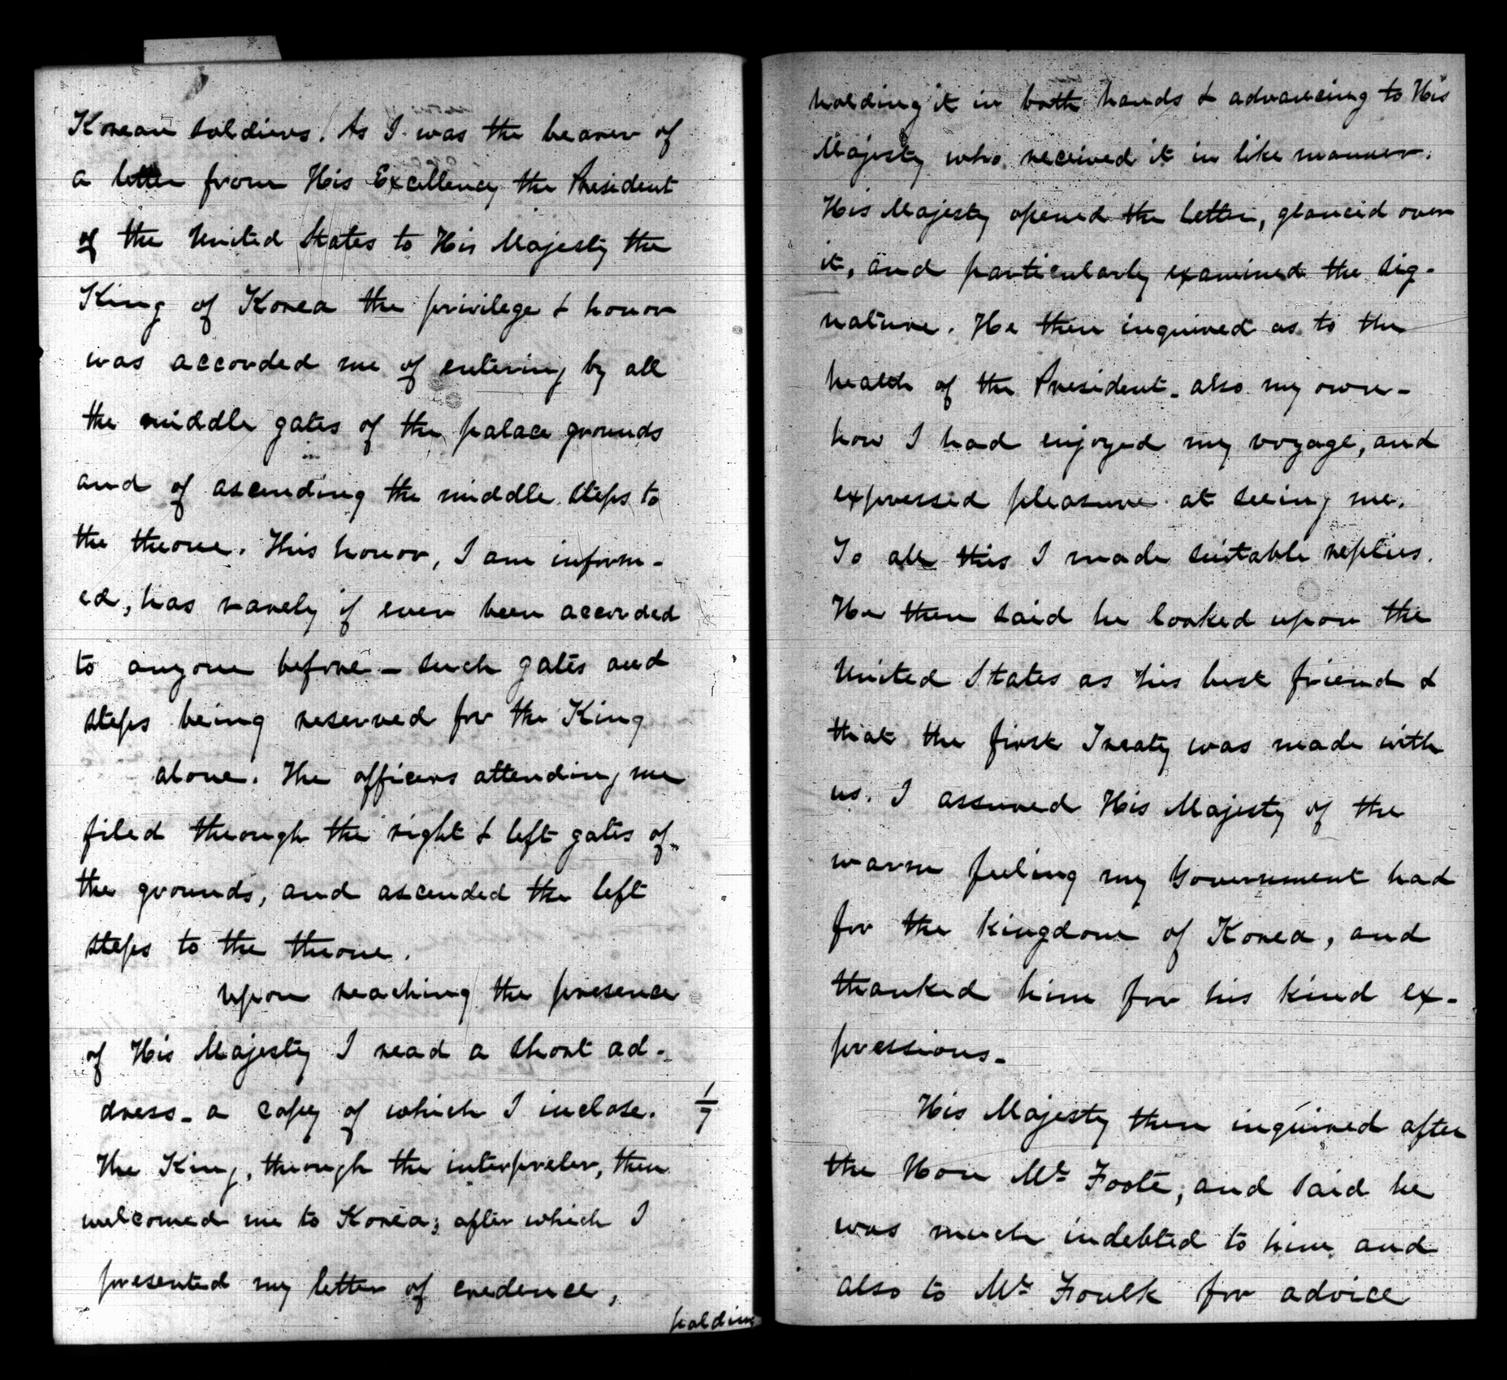 Korean soldiers. As I was the bearer of
a letter from His Excellency the President
of the United States to His Majesty the
King of Korea the privilege & honor
was accorded me of entering by all
the middle gates of the palace grounds
and of ascending the middle steps to
the throne. This honor, I am inform-
ed, has rarely if ever been accorded
to anyone before - such gates and
steps being reserved for the King
alone. The officers attending me
filed through the right & left gates of
the grounds, and ascended the left
steps to the throne.
Upon reaching the presence
of His Majesty I read a short ad-
dress - a copy of which I inclose. 1/7
The King, through the interpreter, then
welcomed me to Korea; after which I
presented my letter of credence,
holding
holding it in both hands & advancing to His
Majesty who received it in like manner.
His Majesty opened the letter, glanced over
it, and particularly examined the sig-
nature. He then inquired as to the
health of the President - also my own -
how I had enjoyed my voyage, and
expressed pleasure at seeing me.
To all this I made suitable replies.
He then said he looked upon the
United States as his best friend &
that the first Treaty was made with
us. I assured His Majesty of the
warm feeling my Government had
for the kingdom of Korea, and
thanked him for his kind ex-
pressions -
His Majesty then inquired after
the Hon Mr. Foote, and said he
was much indebted to him and
also to Mr. Foulk for advice